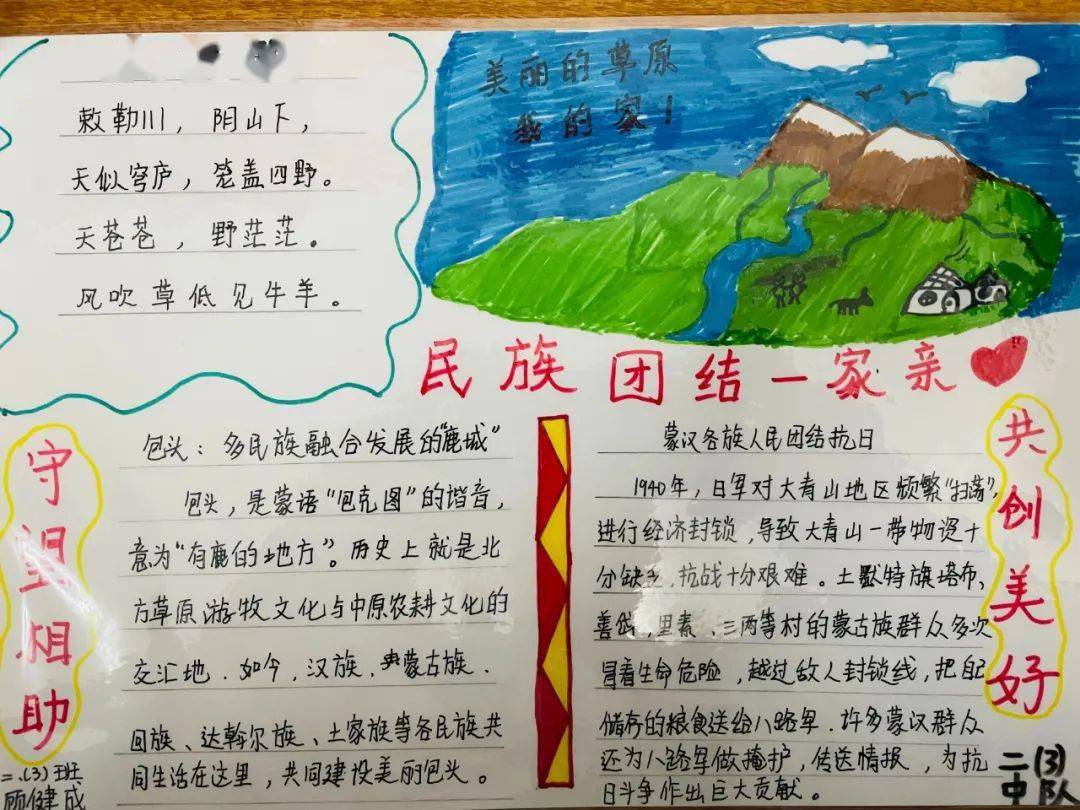 敕勒川，阴山下，
天似穹庐，笼盖四野。
天苍苍，野茫茫。
风吹草低见牛羊。
美丽的草原
我的家！
民族团结一家亲
守望相助
包头：多民族融合发展的“鹿城”
包头，是蒙语“包克图”的谐音，
意为“有鹿的地方”。历史上就是北
方草原游牧文化与中原农耕文化的
交汇地．如今，汉族、蒙古族．
回族、达斡尔族、土家族等各民族共
同生活在这里，共同建设美丽包头。
蒙汉各族人民团结抗日
1940年，日军对大青山地区频繁“扫荡”，
进行经济封锁，导致大青山一带物资十
分缺乏，抗战十分艰难。土默特旗塔布、
善岱，里素、三两等村的蒙古族群众多次
冒着生命危险，越过敌人封锁线，把自己
储存的粮食送给八路军．许多蒙汉群众
还为八路军做掩护，传送情报，为抗
日斗争作出巨大贡献。
共创美好
二．(3)班
顾健成
二(3)
中队